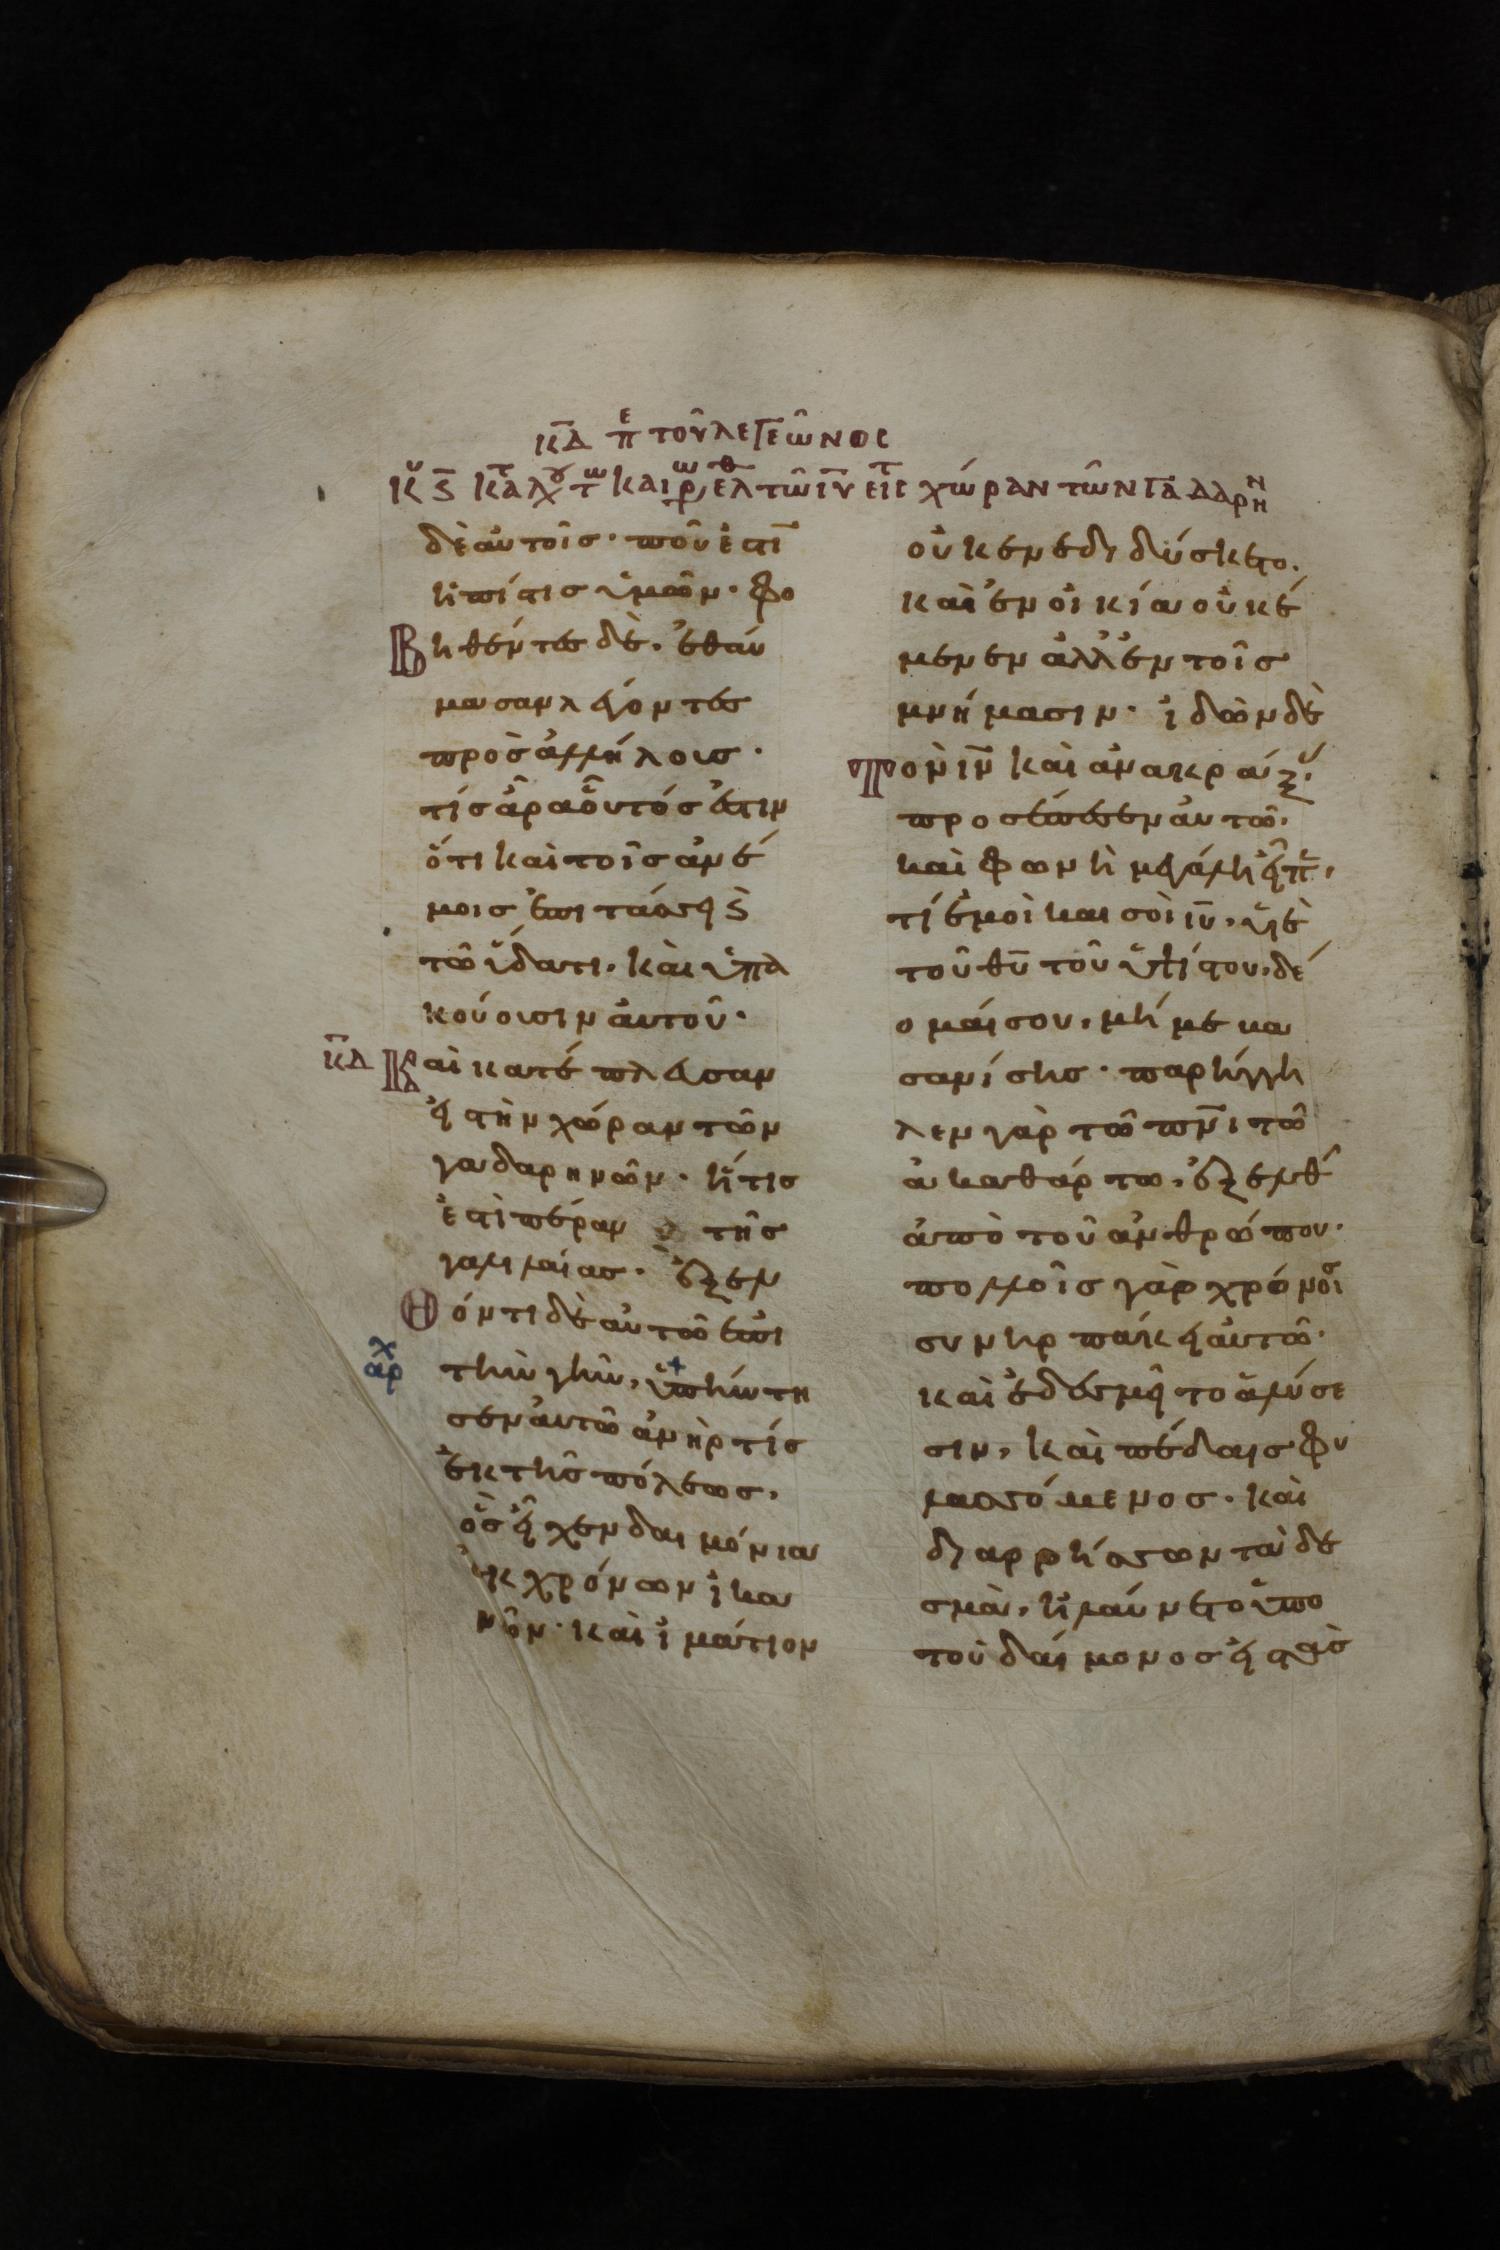 κ̅δ̅ πε τοῦ λεγεῶνος
κυ ϛ̅ κατ λου τω καιρω ελθ τῶ ιυ̅ εἰς τ χώραν τῶν γαδαρην
δὲ αὐτοῖσ· ποῦ ἐστι̅
ἡ πίστισ ὑμῶν· φο
Βηθέντες δὲ. ἐθαύ
μασαν λέγοντες
προσ ἀλλήλουσ·
τίσ ἄρα οὗτόσ ἐστιν
ὅτι καὶ τοῖσ ἀνέ
μοισ ἐπιτάσσει ϗ
τῶ ὕδατι. καὶ ὑπα
κούουσιν αὐτοῦ·
κ̅δ̅ Καὶ κατέπλευσαν
εἰσ τὴν χώραν τῶν
γαδαρηνῶν· ἥτισ
ἐστὶ πέραν τῆσ
γαλιλαίασ· ἐξελ
Θόντι δὲ αὐτῶ ἐπὶ
αρχ τὴν γῆν, ὑπήντη
σεν αὐτῶ ἀνήρ τίσ
ἐκ τῆσ πόλεωσ,
ὃσ εἶχεν δαιμόνια
ἐκ χρόνων ἱκα
νῶν· καὶ ἱμάτιον
οὐκ ἐνεδιδύσκετο.
καὶ ἐν οἰκία οὐκ ἔ
μενεν ἀλλ' ἐν τοῖσ
μνήμασιν· ἰδὼν δὲ
Τὸν ιν̅ καὶ ἀνακράξ
προσέπεσεν αὐτῶ.
καὶ φωνῆ μεγάλη εἶπ,
τί ἐμοὶ και σοὶ ιυ̅, υἱὲ
τοῦ θυ̅ τοῦ ὑψίστου, δέ
ομαί σου, μή με βα
σανίσησ· παρήγγει
λεν γὰρ τῶ πνι̅ τῶ
ἀκαθάρτω, ἐξελθεῖ
ἀπὸ τοῦ ἀνθρώπου.
πολλοῖσ γὰρ χρόνοισ
συνηρπάκει αὐτῶ.
καὶ ἐδεσμεῖτο ἁλύσε
σιν, καὶ πέδαισ φυ
λασσόμενοσ. καὶ
διαρρήσσων τὰ δε
σμὰ, ἠλαύνετο ὑπο
τοῦ δαίμονοσ εἰσ τὰσ